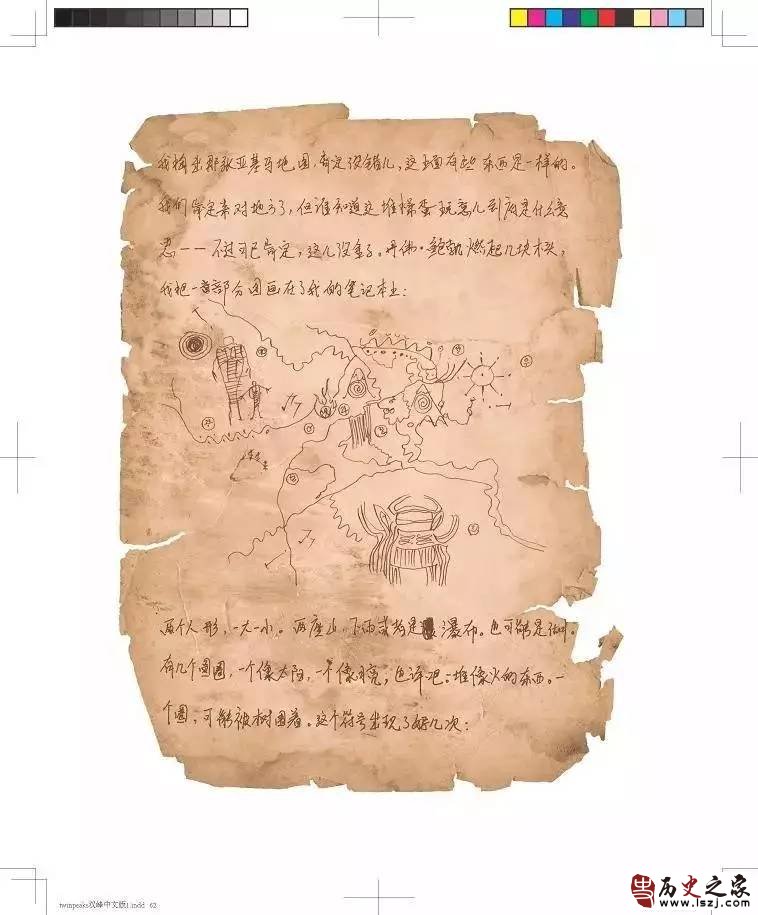 我摊出那张亚基马地图,肯定没错儿,这上面有些东西是一样的。
我们肯定来对地方了,但谁知道这堆操蛋玩意儿到底是什么意
思——不过可以肯定,这儿没金子。开佛·鲍勒燃起几块木头,
我把一部分图画在了我的笔记本上:
两个人形,一大一小。两座山,下雨或者是瀑布。也可能是
有几个圆圈,一个像太阳,一个像月亮;也许吧;一堆像火的东西。一
个圆,可能被树围着。这个符号出现了好几次:
twinpeaks双峰中文版1.indd 62
历史之家
www.lszj.com